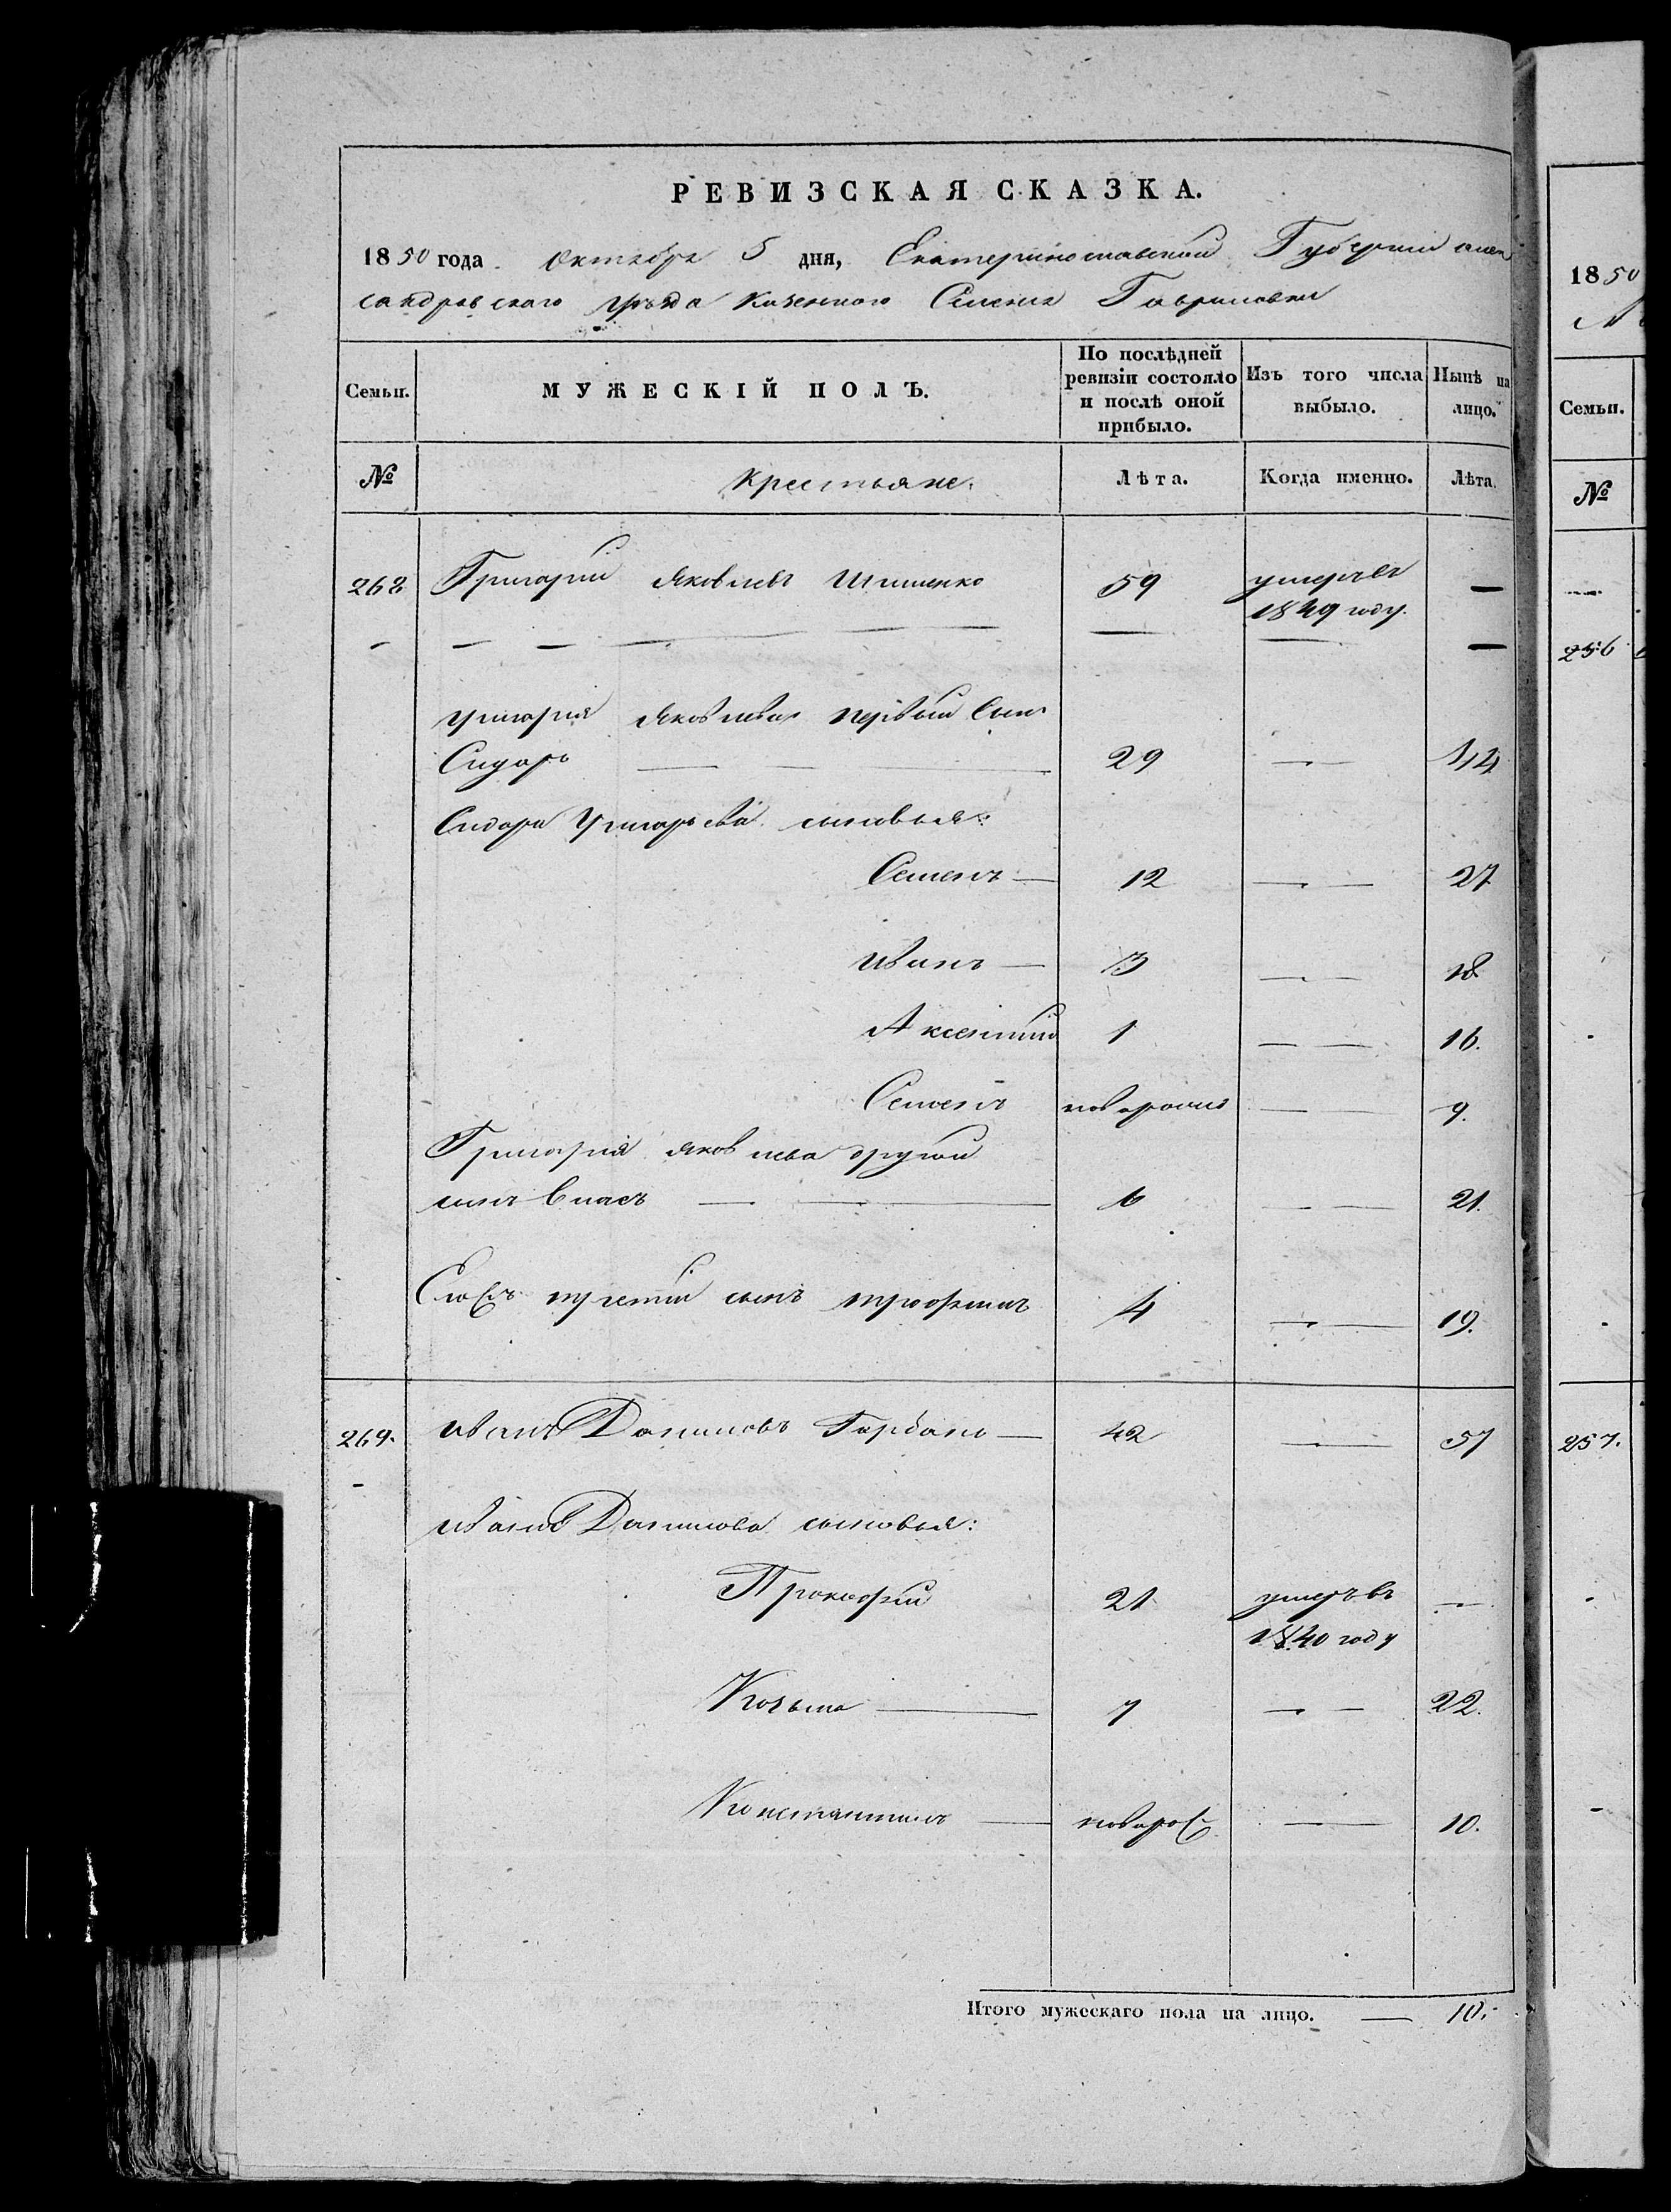 РЕВИЗСКАЯ СКАЗКА.
1850 года Октября 5 дня, Екатеринославской Губернии Алек
сандровскаго уѣзда казенного Селения Гавриловки
Семьи. МУЖЕСКІЙ ПОЛЪ. По послѣдней ревизіи состояло и послѣ оной прибыло. Изъ того числа выбыло. Нынѣ на лицо.
№ Крестьяне. Лѣта. Когда именно. Лѣта.
268 Григорий Яковлевъ 59 умеръ въ
1849 году. —
Григория Яковлева первый сынъ
Сидоръ 29 — 44
Сидора Григорьева сыновья:
Семенъ — 12 — 27
Иванъ — 3 — 18
Аксентий 1 — 16.
Семенъ новорожд — 9.
Григория Яковлева другой
сынъ Власъ — 6 — 21.
Егожъ третий сынъ Трофимъ 4 — 19.
269. Иванъ Даниловъ Горбань — 42 — 57
Ивана Данилова сыновья:
Прокофий 21 умеръ въ —
1840 году
Козьма — 7 — 22.
Константинъ — новорож — 10.
Итого мужескаго пола на лицо. — 10.
1850
Семьи.
№
256
257.